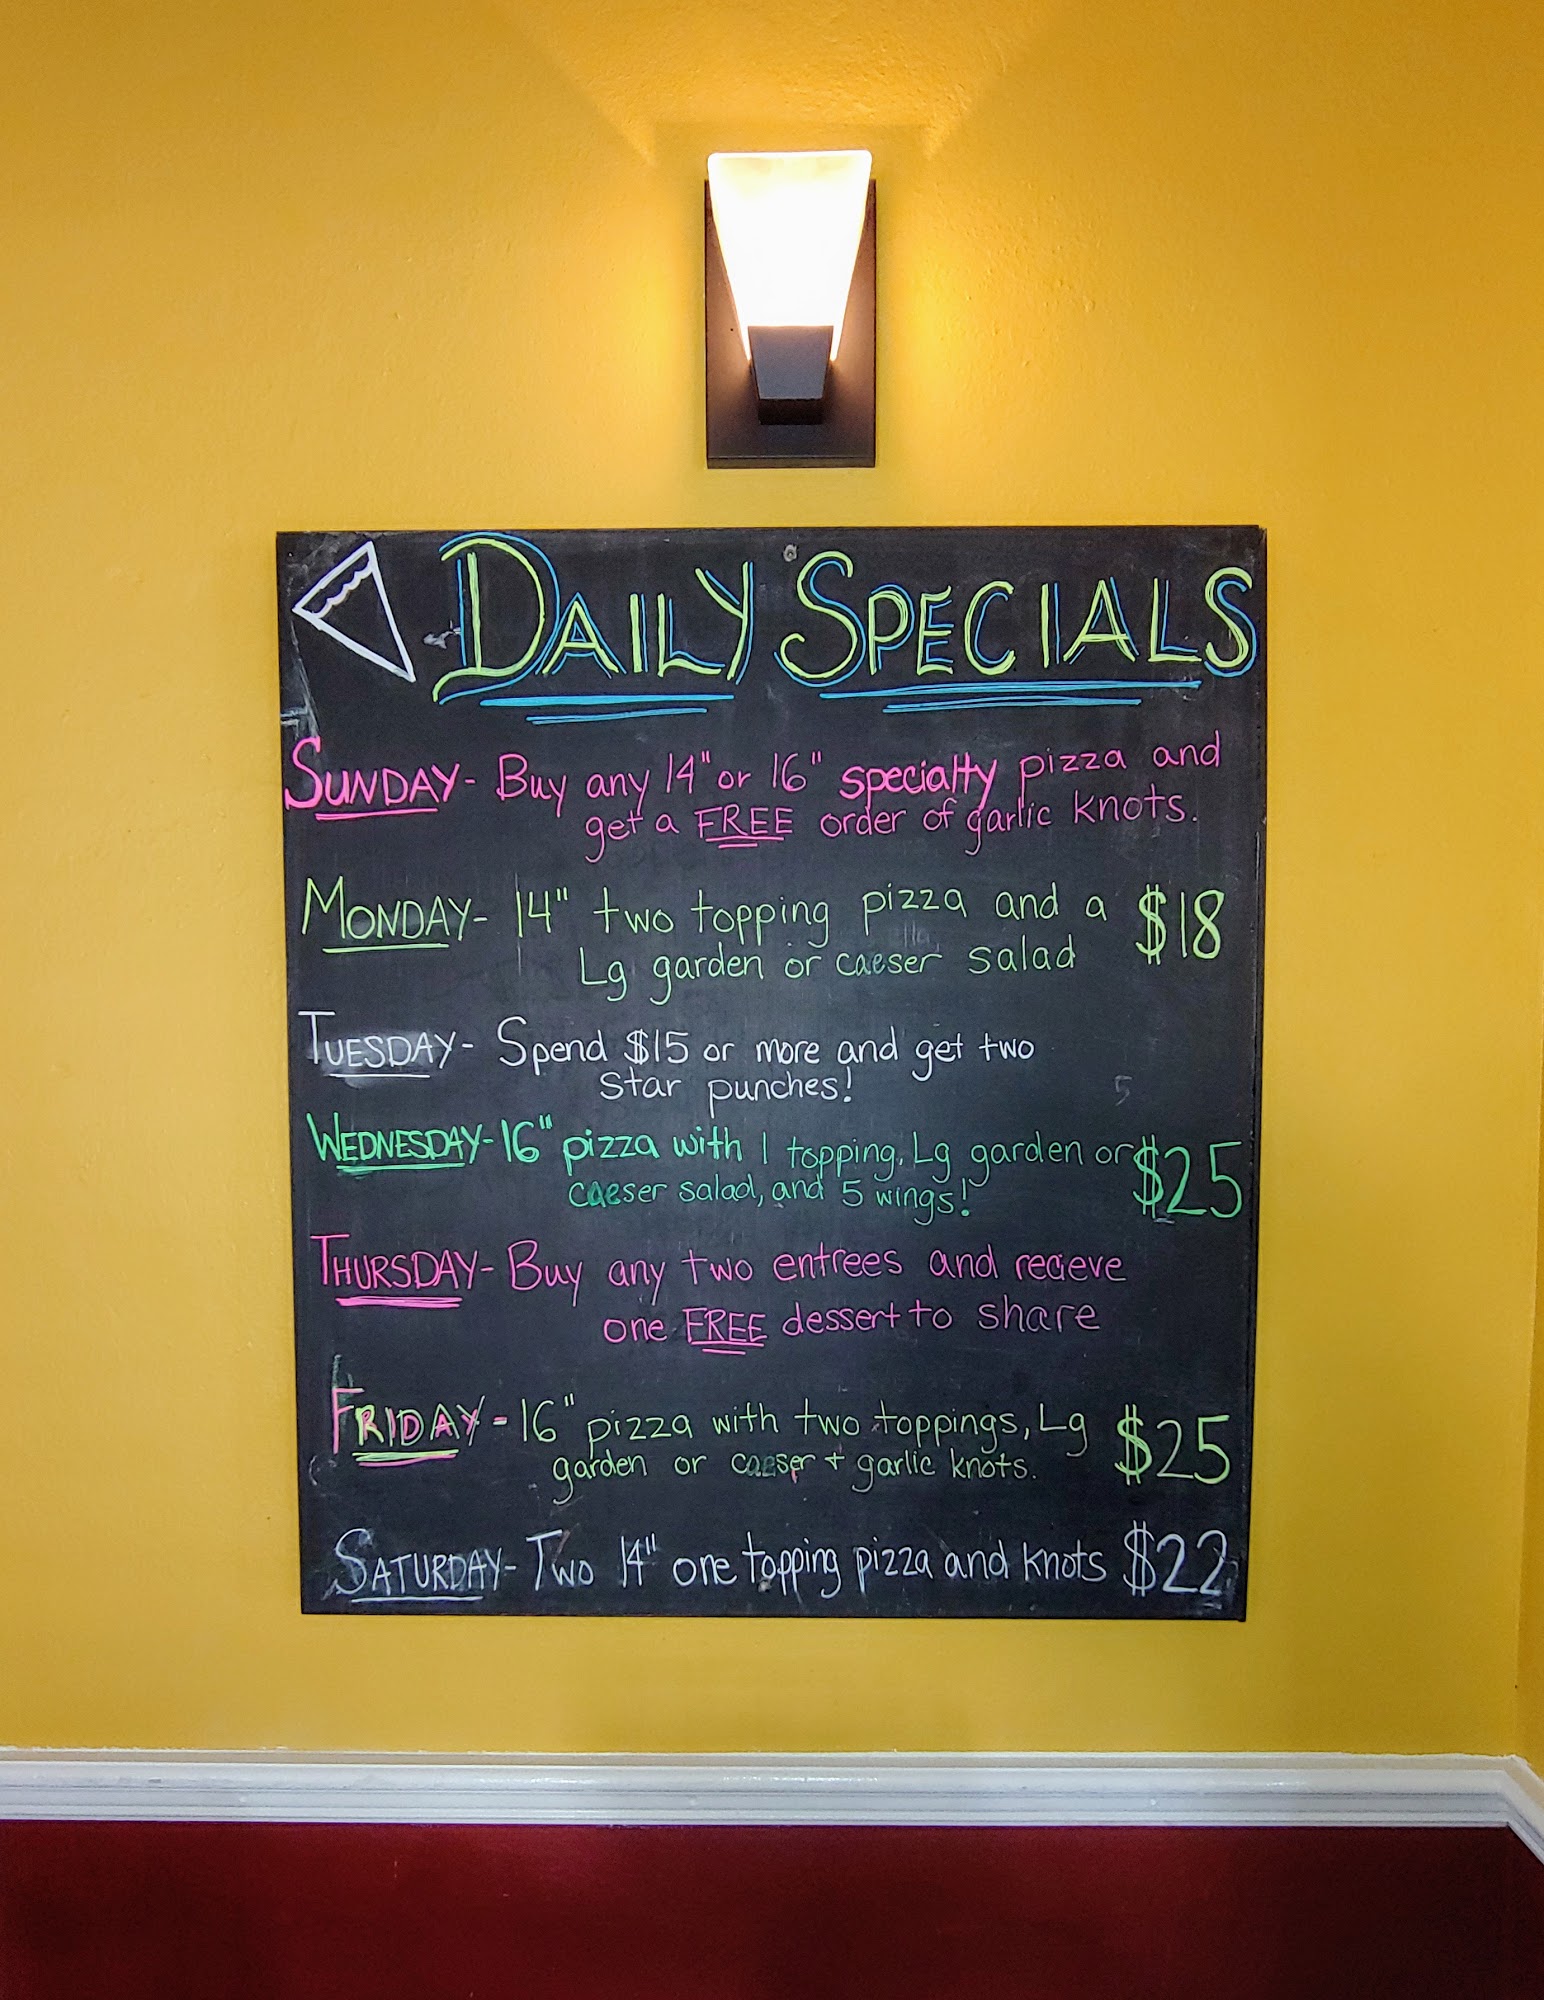 DAILY SPECIALS
SUNDAY- Buy any 14" or 16" specialty pizza and
get a FREE order of garlic knots.
MONDAY- 14" two topping pizza and a $18
Lg garden or caeser salad
TUESDAY- Spend $15 or more and get two
star punches!
WEDNESDAY- 16" pizza with 1 topping, Lg garden or $25
caeser salad, and 5 wings!
THURSDAY- Buy any two entrees and recieve
one FREE dessert to share
FRIDAY- 16" pizza with two toppings, Lg $25
garden or caeser + garlic knots.
SATURDAY- Two 14" one topping pizza and knots $22